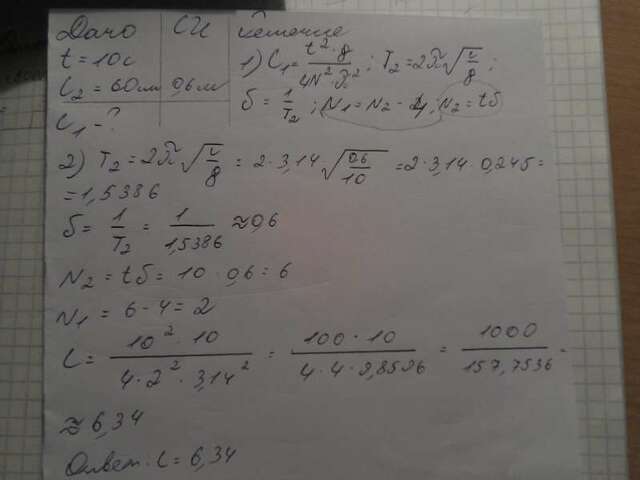 Дано СИ Решение
t = 10с
l₂ = 60см 0,6м
l₁ - ?
1) l₁ = t²·g / 4N²·π² ; T₂ = 2π√(l/g) ;
б = 1/T₂ ; N₁ = N₂ - 4 ; N₂ = tб
2) T₂ = 2π√(l/g) = 2·3,14·√(0,6/10) = 2·3,14·0,245 =
= 1,5386
б = 1/T₂ = 1/1,5386 ≈ 0,6
N₂ = tб = 10·0,6 = 6
N₁ = 6 - 4 = 2
l = 10²·10 / 4·2²·3,14² = 100·10 / 4·4·9,8596 = 1000 / 157,7536 =
≈ 6,34
Ответ: l = 6,34